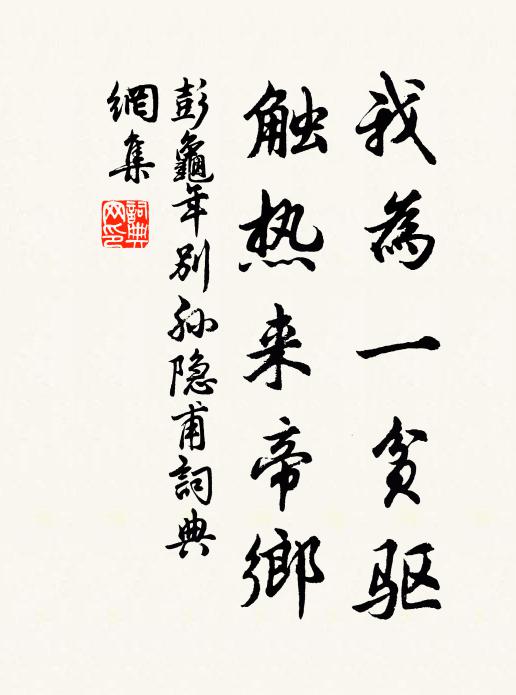 我為一贫驱
触热来帝鄉
彭龜年别孙隐甫詞典
網集
詞典
网印